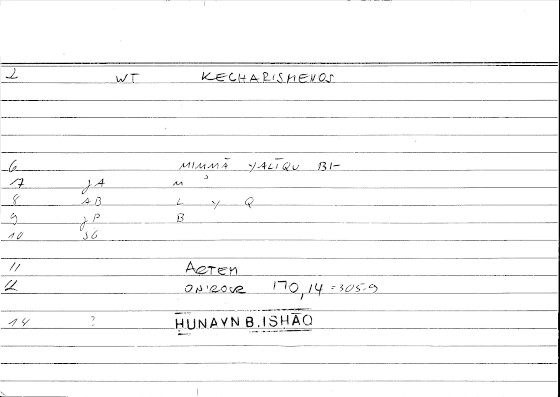 2 WT KECHARISMENOS
6 MIMMĀ YALĪQU BI-
7 JA M ʾ
8 AB L Y Q
9 JP B
10 SG
11 ARTEM
12 ONIROCR 170,14 = 305.9
14 ? HUNAYN B. ISHAQ